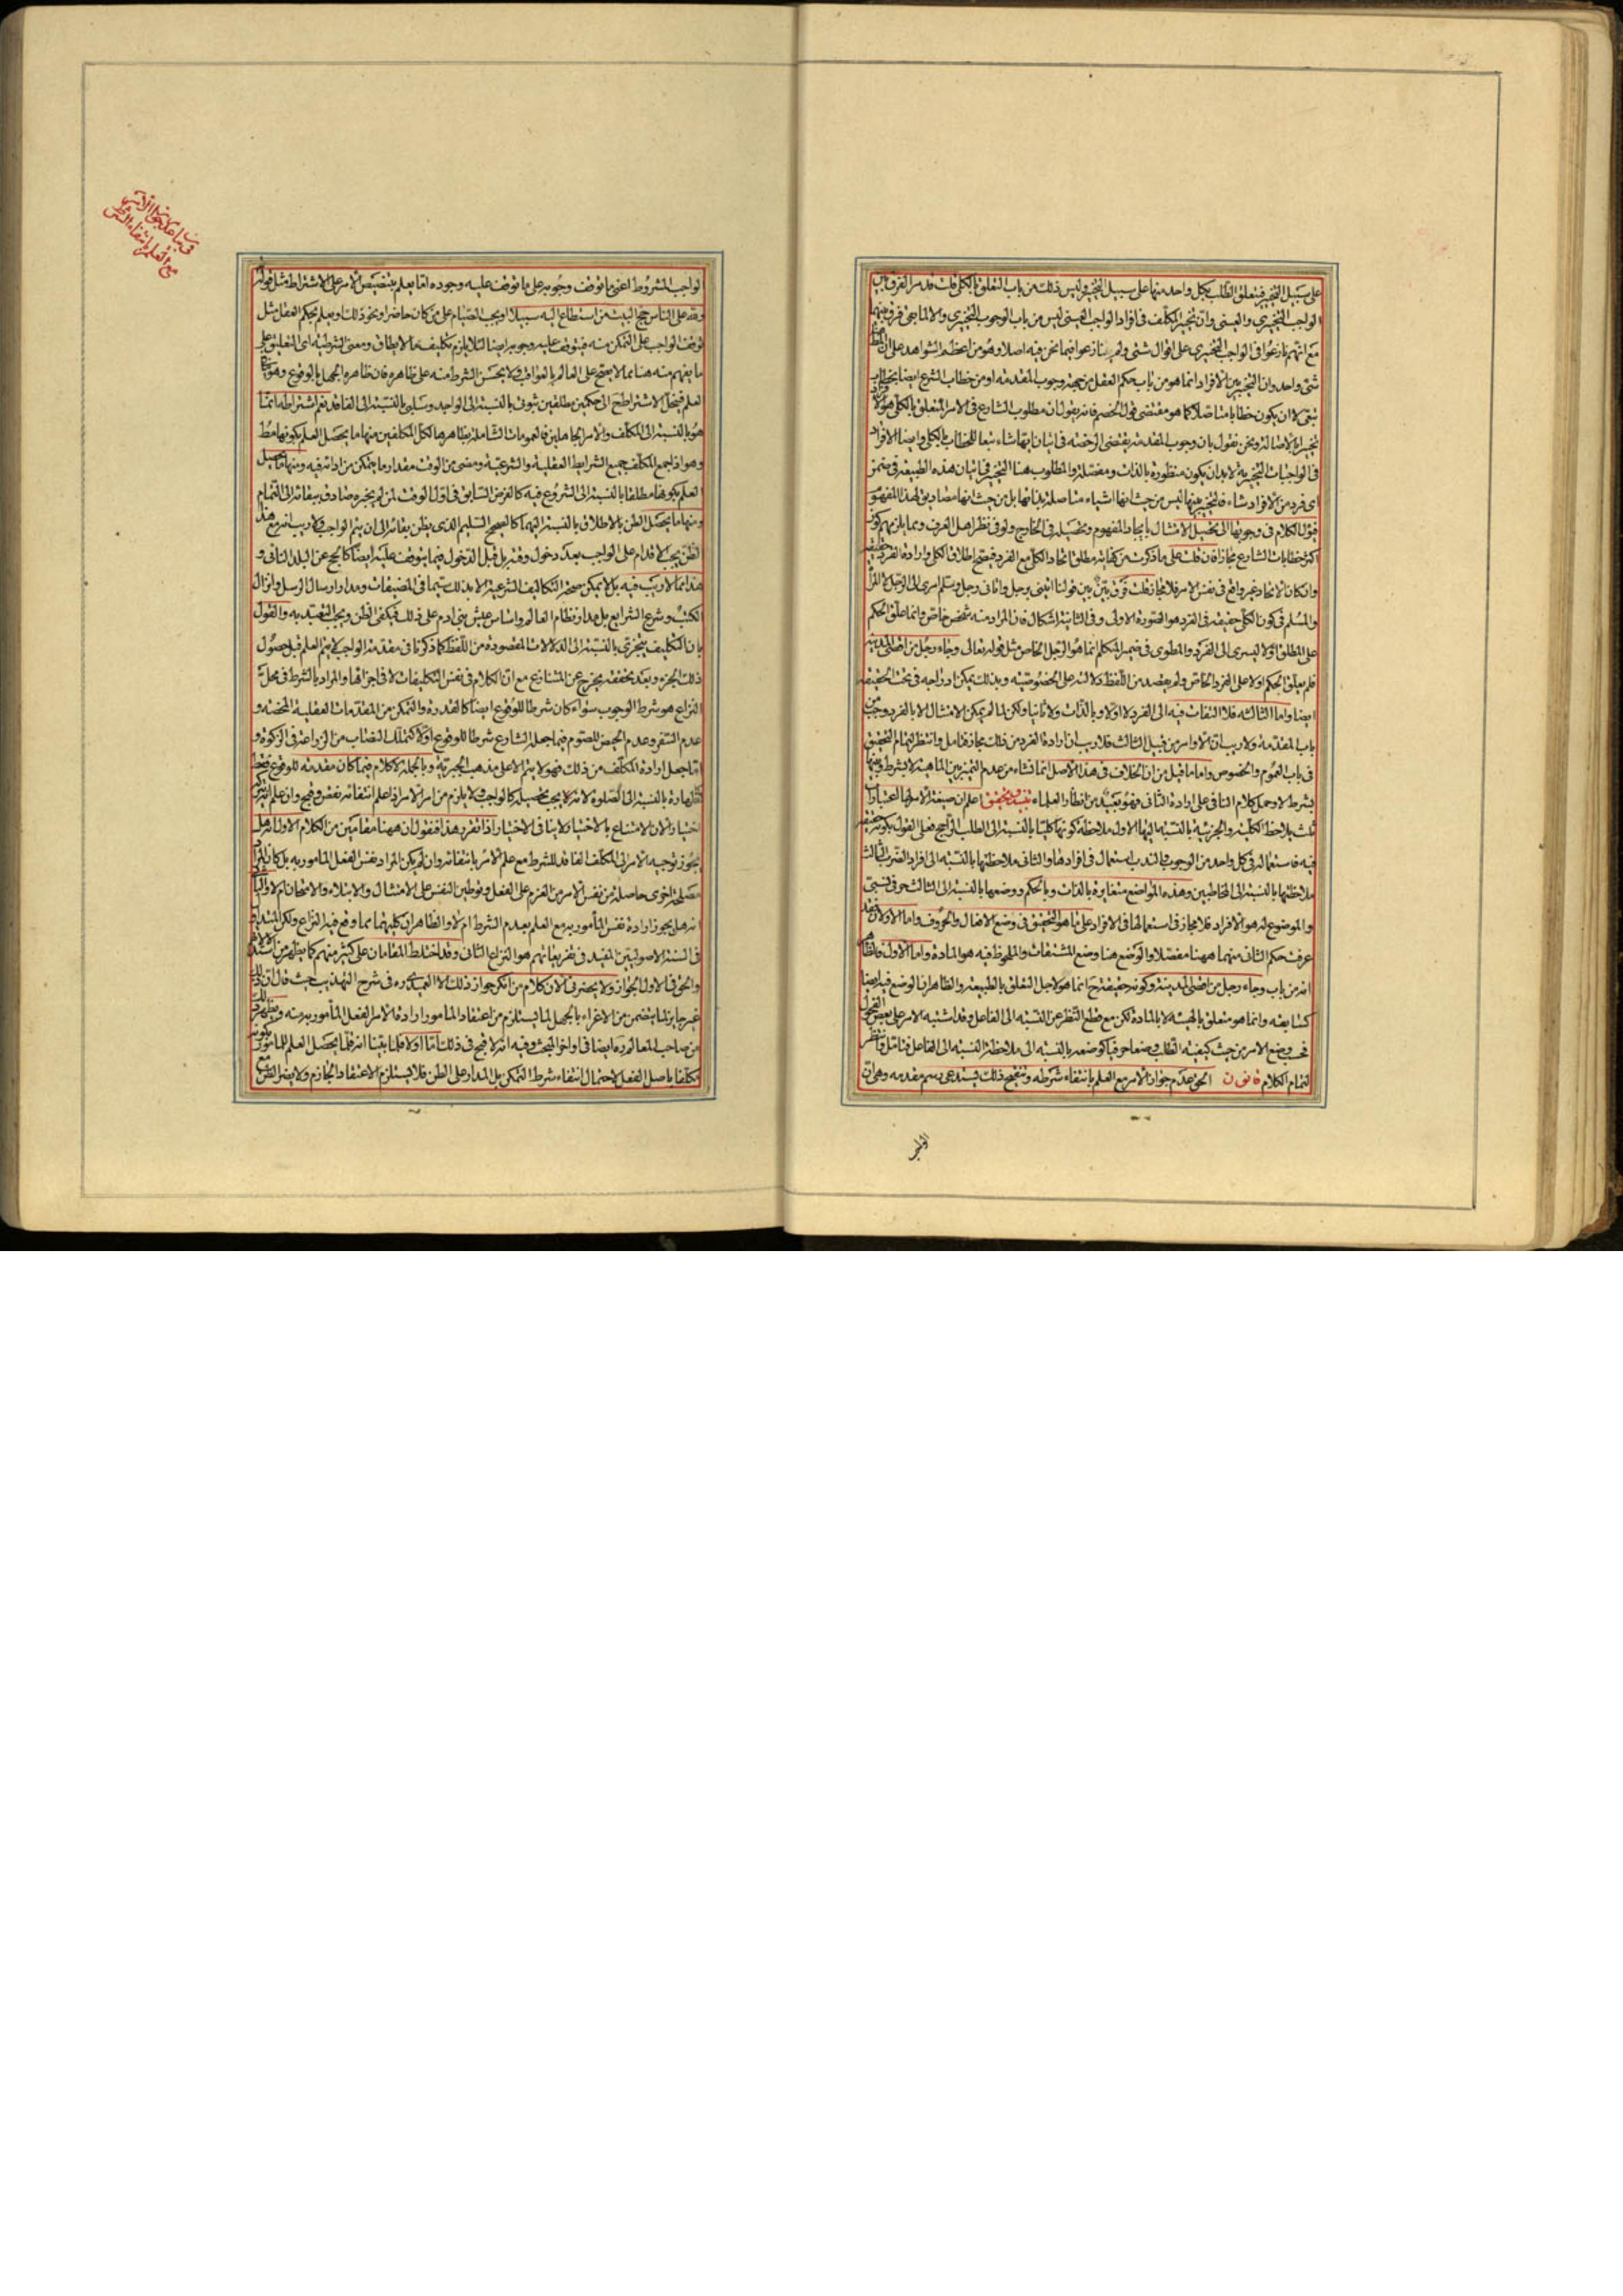 على سبيل التخيير فيتعلق الطلب بكل واحد منها على سبيل التخيير وليس ذلك من باب التعلق بالكلي قلت قد مر الفرق بين
الواجب التخييري والعيني وان تخيير المكلف في افراد الواجب العيني ليس من باب الوجوب التخييري والا لما بقي فرق بينهما
مع انهم نازعوا في الواجب التخييري على اقوال شتى ولم ينازعوا فيما نحن فيه اصلا وهو من اعظم الشواهد على ان
شيء واحد وان التخيير بين الافراد انما هو من باب حكم العقل من جهة وجوب المقدمة او من خطاب الشرع ايضا بخطاب
تبعي لا ان يكون خطابا متاصلا كما هو مقتضى قول الخصم فانه يقول ان مطلوب الشارع في الامر المتعلق بالكلي هو
تخييرا بالاصالة ونحن نقول بان وجوب المقدمة يقتضي الرخصة في اتيان ايها شاء تبعا للخطاب بالكلي وايضا الافراد
في الواجبات التخييرية لا بد ان يكون منظورة بالذات ومفصلة والمطلوب هنا التخيير في اتيان هذه الطبيعة في ضمن
اي فرد من الافراد شاء فالتخيير بينها ليس من حيث انها اشياء متاصلة بذاتها بل من حيث انها مصاديق لهذا المفهوم
فيؤل الكلام في وجوبها الى تحصيل الامتثال بايجاد المفهوم وتحصيله في الخارج ولو في نظر اهل العرف ومما يلزمهم كون
اكثر خطابات الشارع مجازا فان قلت على ما ذكرت من كفاية مطلق اتحاد الكلي مع الفرد فيصح اطلاق الكلي وارادة الفرد حقيقة
وان كان الاتحاد غير واقع في نفس الامر فلا مجاز قلت فرق بين بين قولنا ائتني برجل واتاني رجل وسلم امري الى الرجل لا المرأة
والمسلم في كون الكلي حقيقة في الفرد هو الصورة الاولى وفي الثانية اشكال فان المراد منه شخص خاص وانما علق الحكم
على المطلق اولا ليسري الى الفرد والمطوي في ضمير المتكلم انما هو الرجل الخاص مثل قوله تعالى وجاء رجل من اقصى المدينة
فلم يعلق الحكم اولا على الفرد الخاص ولم يقصد من اللفظ دلالته على الخصوصية وبذلك يمكن ادراجه في تحت الحقيقة
ايضا واما الثالثة فلا التفات فيه الى الفرد لا اولا وبالذات ولا ثانيا ولكن لما لم يمكن الامتثال الا بالفرد وجب من
باب المقدمة ولا ريب ان الاوامر من قبيل الثالث فلا ريب ان ارادة الفرد من ذلك مجاز فتامل وانتظر لتمام التحقيق
في باب العموم والخصوص واما ما قيل من ان الخلاف في هذا الاصل انما نشاء من عدم التمييز بين الماهية لا بشرط وبينها
بشرط لا وحمل كلام النافي على ارادة الثاني فهو بعيد من انظار العلماء تنبيه وتحقيق اعلم ان صيغة الامر لها اعتبارات
ثلث يلاحظ الكلية والجزئية بالنسبة اليها الاول ملاحظة كونها كليا بالنسبة الى الطلب الراجح فعلى القول بكونه حقيقة
فيه فاستعماله في كل واحد من الوجوب والندب استعمال في افراد هذا والثاني ملاحظتها بالنسبة الى افراد الضرب الثالث
ملاحظتها بالنسبة الى المخاطبين وهذه المواضع متغايرة بالذات وبالحكم ووضعها بالنسبة الى الثالث حرفي نسبي
والموضوع له هو الافراد فلا مجاز في استعمالها في الافراد على ما هو التحقيق في وضع الافعال والحروف واما الاولان فقد
عرفت حكم الثاني منهما ههنا مفصلا والوضع هنا وضع المشتقات والملحوظ فيه هو المادة واما الاول فالظاهر
انه من باب وجاء رجل من اقصى المدينة وكونه حقيقة ح انما هو لاجل التعلق بالطبيعة والظاهر ان الوضع فيه ايضا
كسابقه وانما هو متعلق بالهيئة لا بالمادة لكن مع قطع النظر عن النسبة الى الفاعل وقد اشتبه الامر على بعض الفحول
فحسب وضع الامر من حيث كيفية الطلب وضعا حرفيا كوضعه بالنسبة الى ملاحظة النسبة الى الفاعل فتامل وانتظر
لتمام الكلام قانون الحق عدم جواز الامر مع العلم بانتفاء شرطه وتنقيح ذلك يستدعي رسم مقدمة وهي ان
الواجب
الواجب المشروط اعني ما توقف وجوبه على ما توقف عليه وجوده اما يعلم بتنصيص الامر على الاشتراط مثل قوله
ولله على الناس حج البيت من استطاع اليه سبيلا او يجب الصيام على من كان حاضرا ونحو ذلك او يعلم بحكم العقل مثل
توقف الواجب على التمكن منه فيتوقف عليه وجوبه ايضا لئلا يلزم تكليف ما لا يطاق ومعنى الشرطية اي التعليق على
ما يفهم منه هنا مما لا يصح على العالم بالعواقب ولا يحسن الشرط منه على ظاهره فان ظاهره الجهل بالوقوع وهو
العلم فينحل الاشتراط ح الى حكمين مطلقين ثبوتي بالنسبة الى الواجد وسلبي بالنسبة الى الفاقد نعم اشتراطه انما
هو بالنسبة الى المكلف والامر الجاهلين فالعمومات الشاملة بظاهرها لكل المكلفين منها ما يحصل العلم بكونها مطلقا
وهو اذا جمع المكلف جميع الشرايط العقلية والشرعية ومضى من الوقت مقدار ما يتمكن من ادائه فيه ومنها ما يحصل
العلم بكونها مطلقا بالنسبة الى الشروع فيه كالفرض السابق في اول الوقت لمن لم يخبره صادق ببقائه الى التمام
ومنها ما يحصل الظن بالاطلاق بالنسبة اليهما كالصحيح السليم الذي يظن بقائه الى ان يتم الواجب ولا ريب انه مع هذا
الظن يجب الاقدام على الواجب بعد دخول وقته بل قبل الدخول فيما يتوقف عليه ايضا كالحج عن البلد النائي و
هذا مما لا ريب فيه بل لا يمكن صحة التكاليف الشرعية الا بذلك سيما في المضيقات ومدار ارسال الرسل وانزال
الكتب وشرع الشرايع بل مدار نظام العالم واساس عيش بني ادم على ذلك فيكفي الظن ويجب التعبد به والقول
بان التكليف يتجزى بالنسبة الى الدلالات المقصودة من اللفظ كما ذكرنا في مقدمة الواجب لا يتم العلم قبل حصول
ذلك الجزء وبعد تحققه يخرج عن المتنازع مع ان الكلام في نفس التكليفات لا في اجزائها والمراد بالشرط في محل
النزاع هو شرط الوجوب سواء كان شرطا للوقوع ايضا كالقدرة والتمكن من المقدمات العقلية المحضة و
عدم السفر وعدم الحيض للصوم فيما جعله الشارع شرطا للوقوع اولا كتملك النصاب من الزراعة في الزكوة و
اما جعل ارادة المكلف من ذلك فهو لا يتم الا على مذهب الجبرية وبالجملة لا كلام فيما كان مقدمة للوقوع فقط
كالطهارة بالنسبة الى الصلوة لانه لا يجب تحصيله كالواجب ولا يلزم من امر الامر اذا علم انتفائه نقض وقبح وان علم انه يترك
اختيارا لان الامتناع بالاختيار لا ينافي الاختيار اذا تقرر هذا فنقول ان ههنا مقامين من الكلام الاول انه هل
يجوز توجيه الامر الى المكلف الفاقد للشرط مع علم الامر بانتفائه وان لم يكن المراد نفس الفعل المامور به بل كان المراد
مصلحة اخرى حاصلة من نفس الامر من العزم على الفعل وتوطين النفس على الامتثال والابتلاء والامتحان ام لا والثاني
انه هل يجوز ارادة نفس المأمور به مع العلم بعدم الشرط ام لا والظاهر ان كليهما مما وقع فيه النزاع ولكن
في السنة الاصوليين المفيد في تفريعاتهم هو النزاع الثاني وقد اختلط المقامان على كثير منهم كما يظهر من
والحق في الاول الجواز ولا يحضرني الان كلام من انكر جواز ذلك الا العميدي ره في شرح التهذيب حيث قال ان ذلك
غير جايز لما يتضمن من الاغراء بالجهل لما يستلزم من اعتقاد المامور ارادة الامر الفعل المأمور به منه ويظهر
من صاحب المعالم ره ايضا في اواخر البحث وفيه انه لا قبح في ذلك اما اولا فلما بينا انه قلما يحصل العلم للمامور بكونه
مكلفا باصل الفعل لاحتمال انتفاء شرط التمكن بل المدار على الظن فلا يستلزم الاعتقاد الجازم ولا يضر الظن مع
مع العلم بانتفاء الشرط